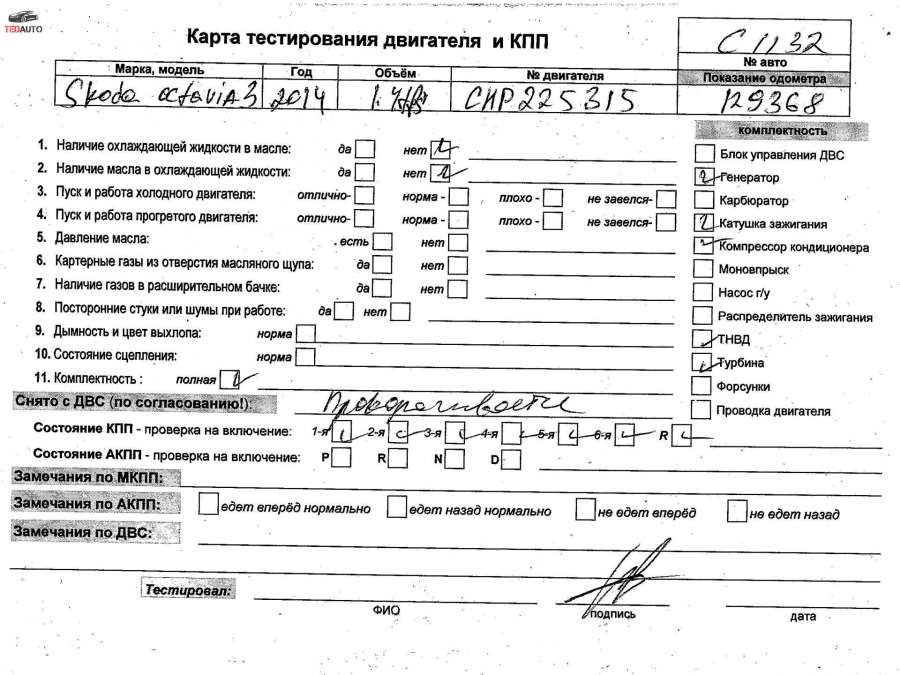 TEDAUTO
Карта тестирования двигателя и КПП
C1132
№ авто
Марка, модель Год Объём № двигателя Показание одометра
Skoda octaviA3 2014 CHP225315 129368
комплектность
1. Наличие охлаждающей жидкости в масле: да нет
Блок управления ДВС
2. Наличие масла в охлаждающей жидкости: да нет
Генератор
3. Пуск и работа холодного двигателя: отлично- норма - плохо - не завелся-
Карбюратор
4. Пуск и работа прогретого двигателя: отлично- норма - плохо - не завелся-
Катушка зажигания
5. Давление масла: есть нет
Компрессор кондиционера
6. Картерные газы из отверстия масляного щупа: да нет
Моновпрыск
7. Наличие газов в расширительном бачке: да нет
Насос г/у
8. Посторонние стуки или шумы при работе: да нет
Распределитель зажигания
9. Дымность и цвет выхлопа: норма
ТНВД
10. Состояние сцепления: норма
Турбина
11. Комплектность : полная
Форсунки
Снято с ДВС (по согласованию!):
Проводка двигателя
Состояние КПП - проверка на включение: 1-я 2-я 3-я 4-я 5-я 6-я R
Состояние АКПП - проверка на включение: P R N D
Замечания по МКПП:
Замечания по АКПП: едет вперёд нормально едет назад нормально не едет вперёд не едет назад
Замечания по ДВС:
Тестировал:
ФИО подпись дата